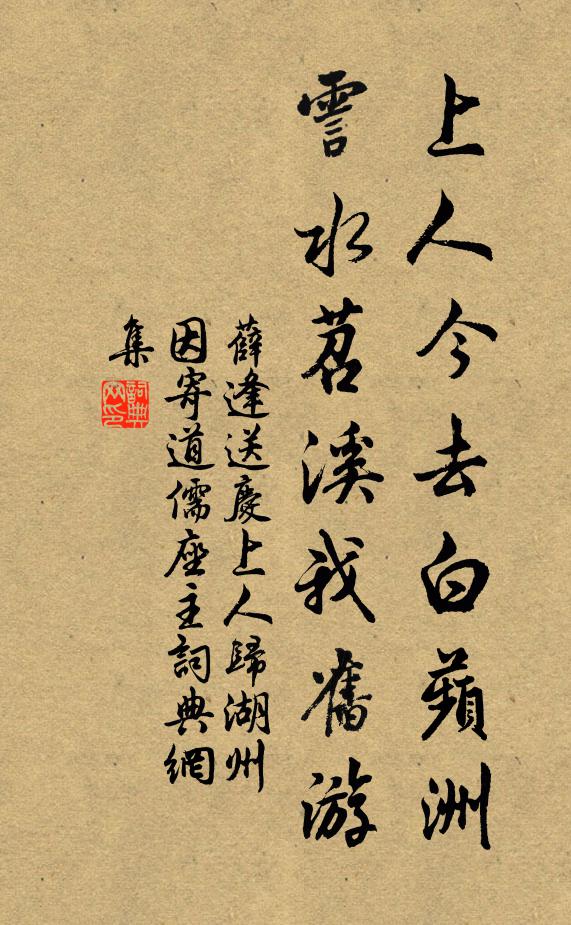 上人今去白蘋洲
霅水苕溪我舊游
薛逢送慶上人歸湖州
因寄道儒座主詞典網
集
詞典網印